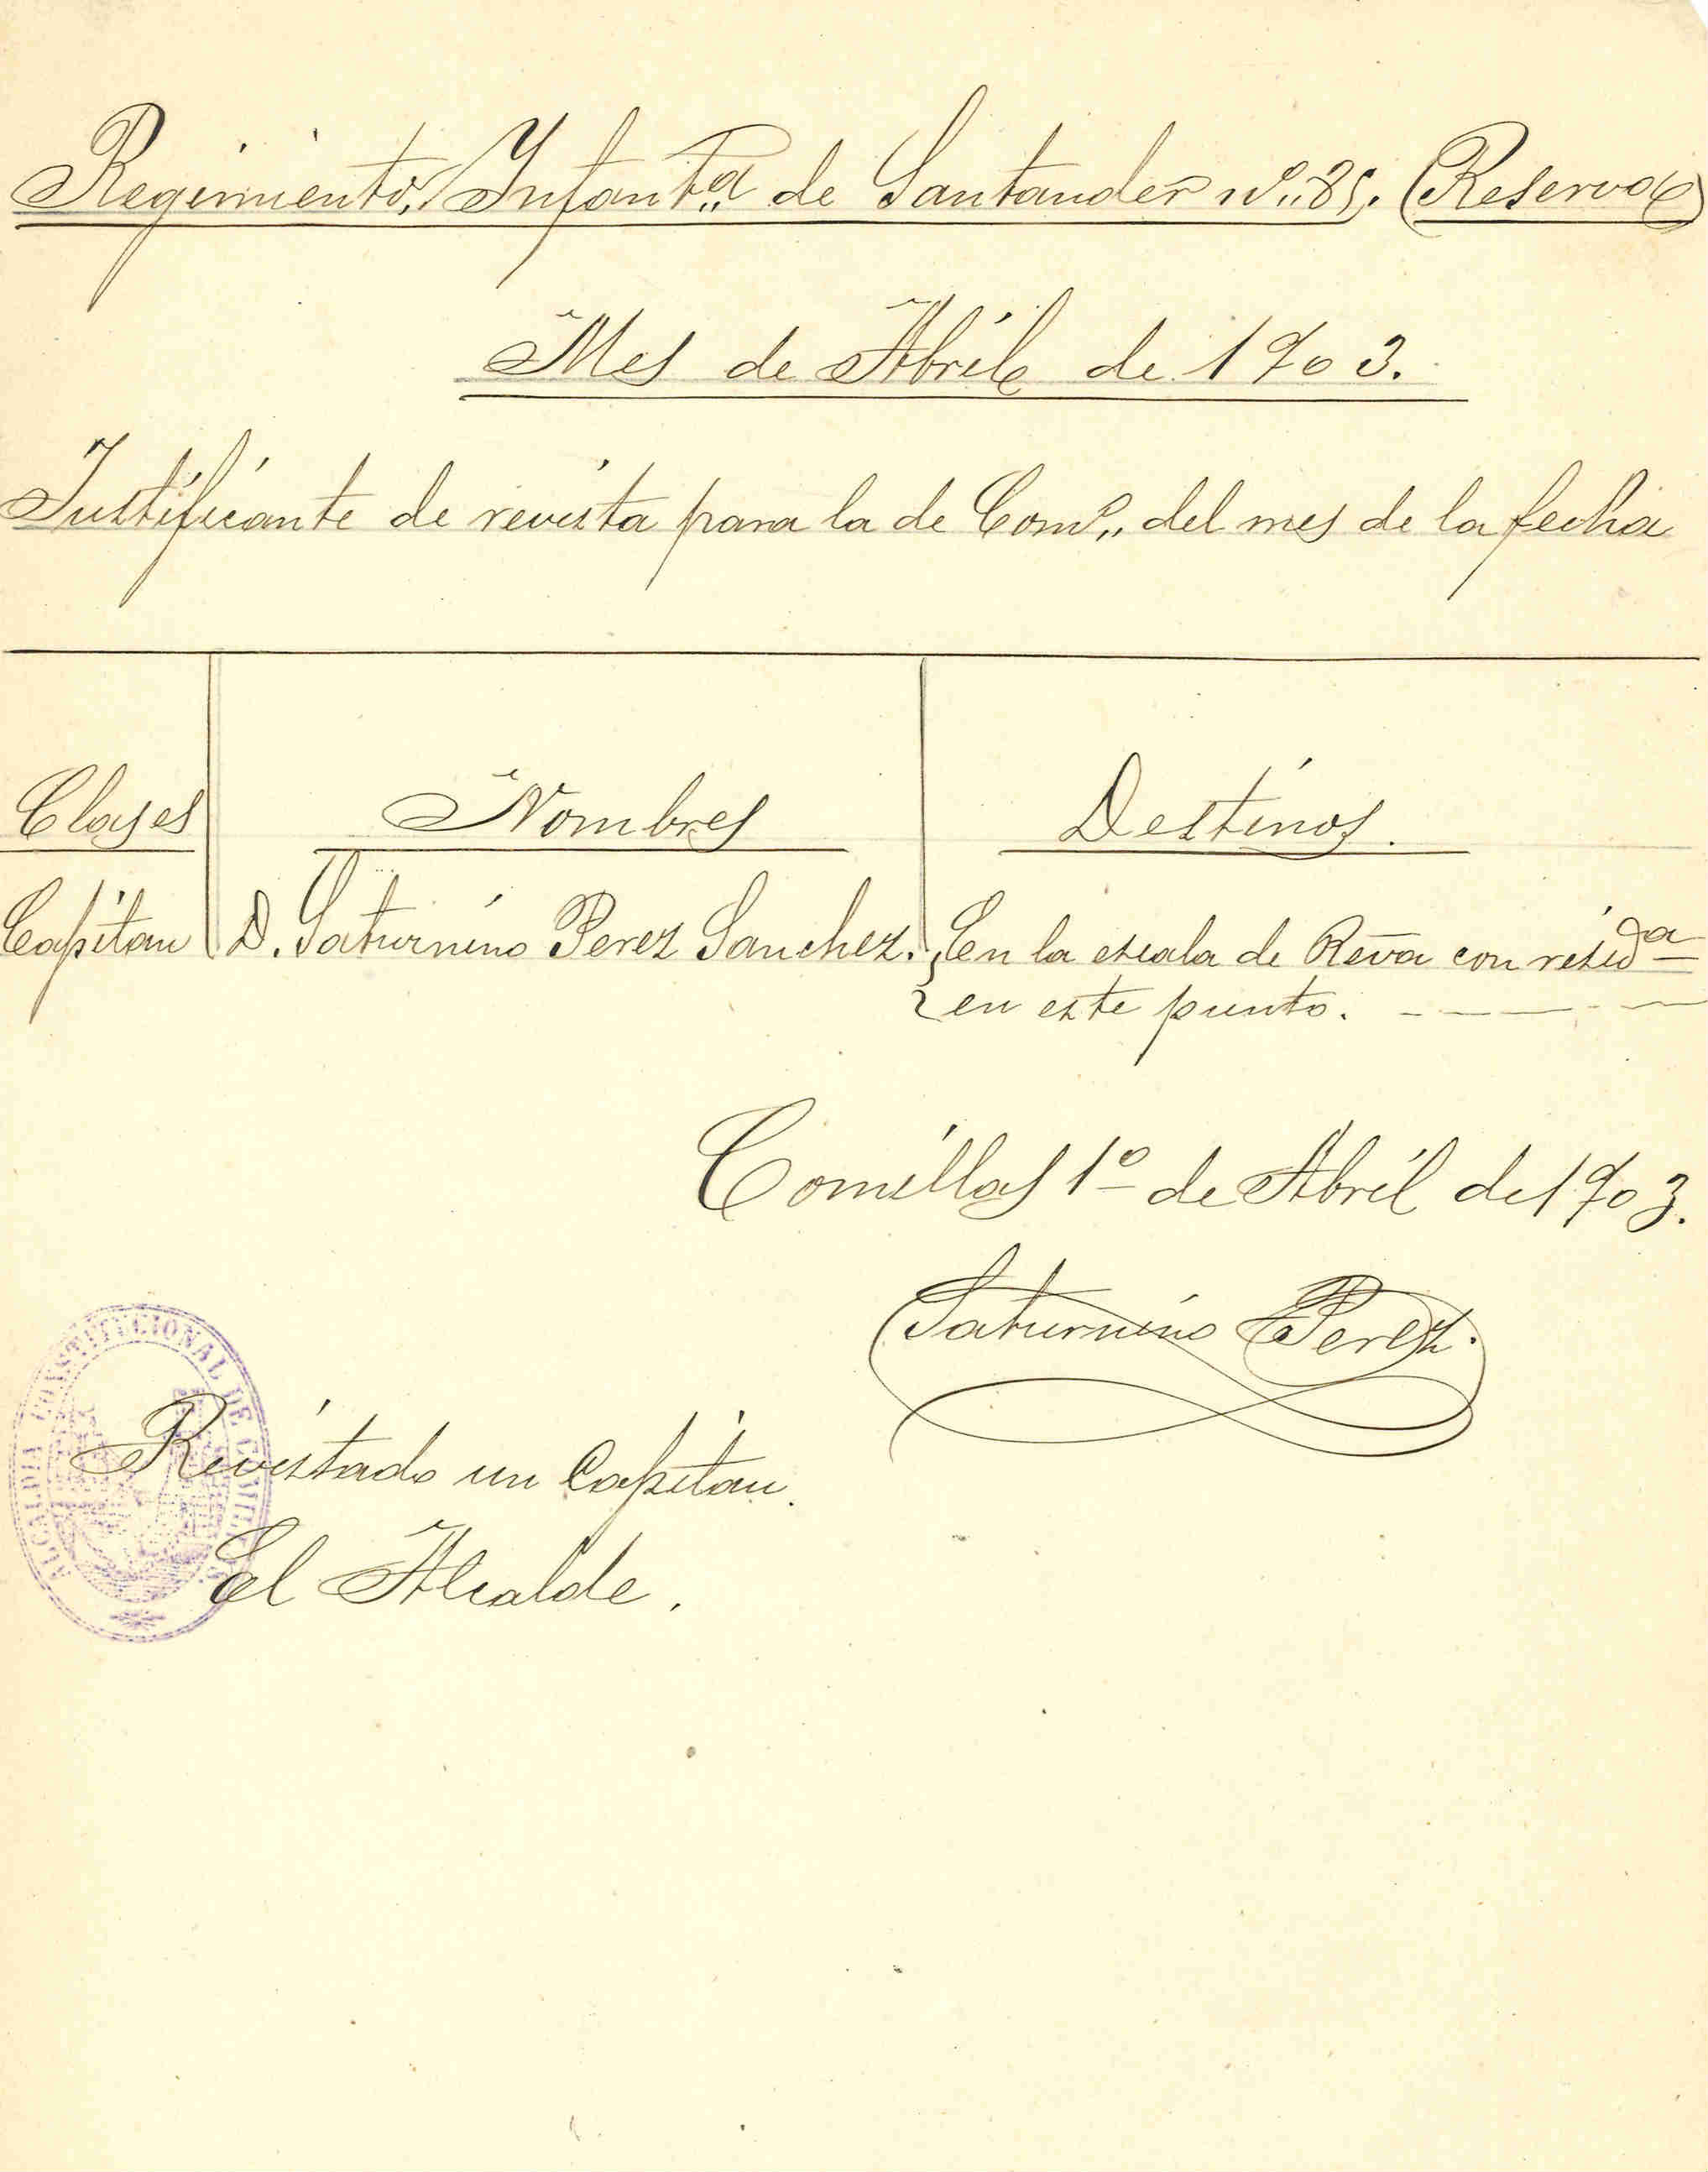 Regimiento Infant.ª de Santander nº 85. (Reserva)
Mes de Abril de 1903.
Justificante de revista para la de Com.º del mes de la fecha
Clases Nombres Destinos.
Capitan D. Saturnino Perez Sanchez. En la escala de Rēva con resid.ª
en este punto.
Comillas 1º de Abril de 1903.
Saturnino Perez.
ALCALDIA CONSTITUCIONAL DE COMILLAS
Revistado un Capitan.
El Alcalde.